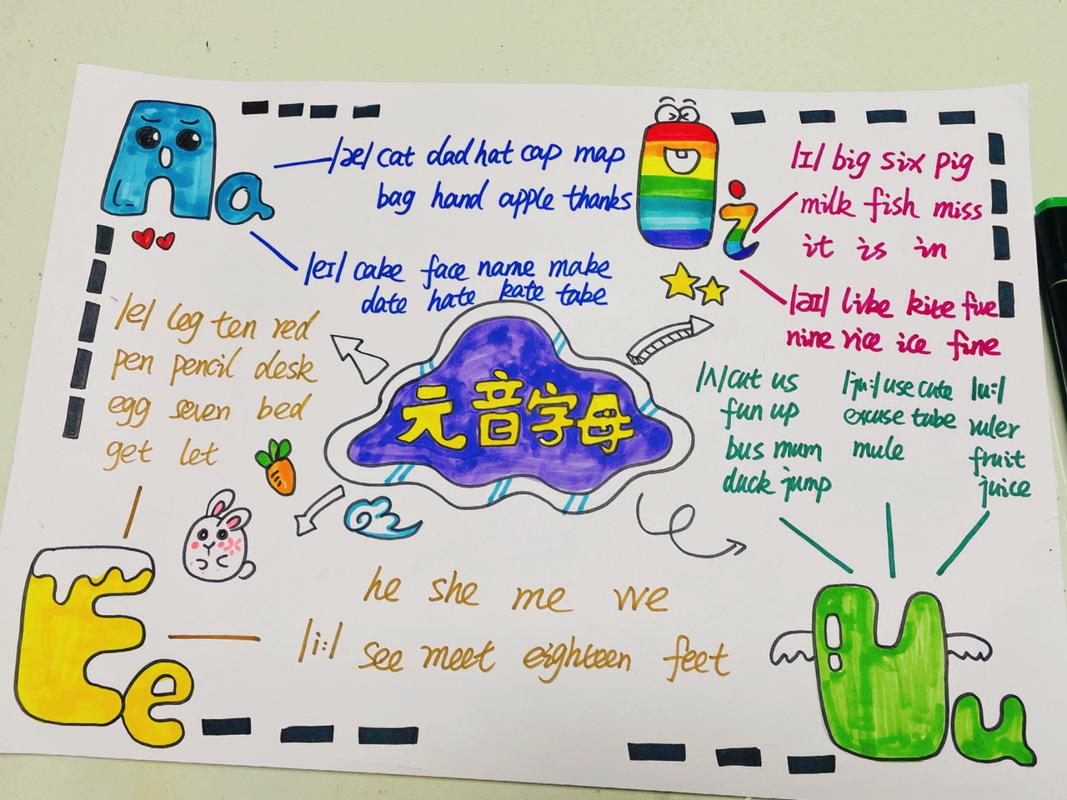 Aa
/æ/ cat dad hat cap map
bag hand apple thanks
/eɪ/ cake face name make
date hate kate take
Ii
/ɪ/ big six pig
milk fish miss
it is in
/aɪ/ like kite five
nine rice ice fine
/e/ leg ten red
pen pencil desk
egg seven bed
get let
元音字母
/ʌ/ cut us
fun up
bus mum
duck jump
/ju:/ use cute
excuse tube
mule
/u:/
ruler
fruit
juice
Ee
he she me we
/i:/ see meet eighteen feet
Uu